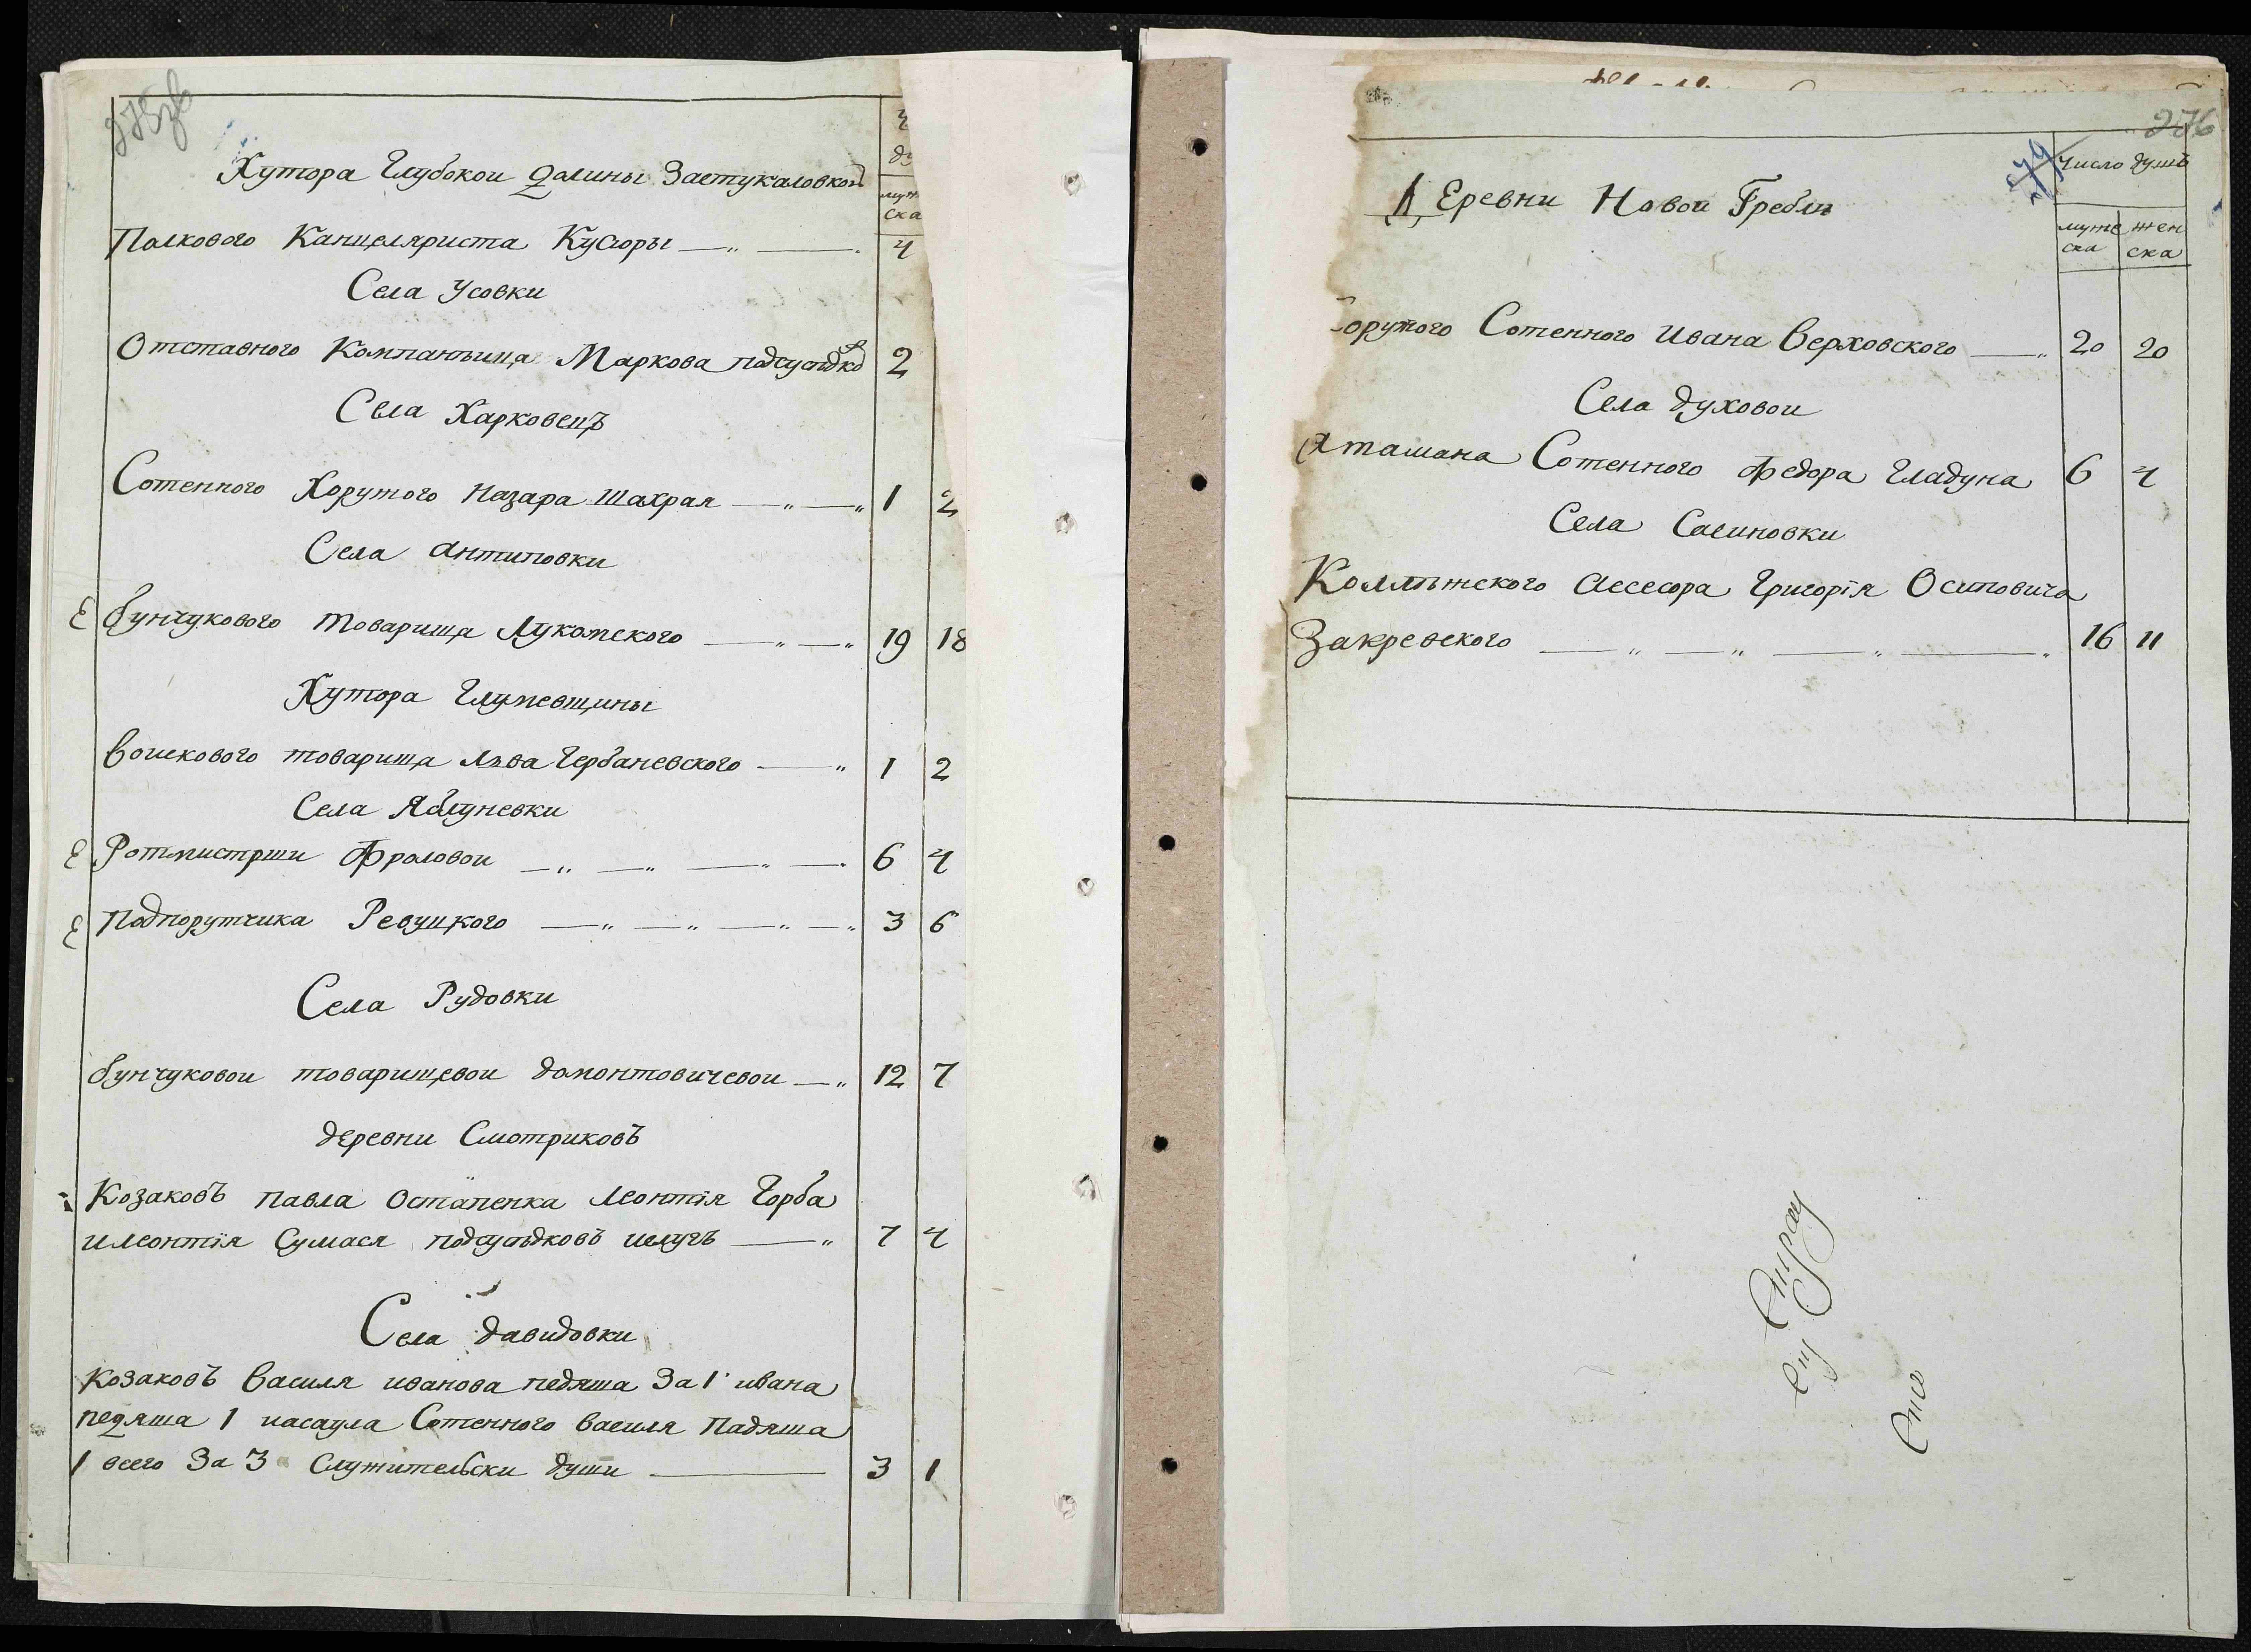 275зв
Хутора Глубокои Долины Застукаловкою
муж
ска
Полкового Канцеляриста Кусюры 4
Села Усовки
Отставного Компанѣица Маркова подсусѣдко 2
Села Харковецъ
Сотенного Хорунжого Назара Шахрая 1 2
Села Антиповки
бунчукового товарища Лукомского 19 18
Хутора
воискового товарища Лва Чербаневского 1 2
Села Яблуневки
Ротмистрши Фроловои 6 4
Подпорутчика Ревуцкого 3 6
Села Рудовки
бунчуковои товарищевои домонтовичевои 12 7
деревни Смотриковъ
Козаковъ павла Остапенка леонтія Горба
илеонтія Сумася подсусѣдковъ 7 4
Села давидовки
Козаковъ василя иванова педяша За 1 ивана
педяша 1 иасаула Сотенного василя Падяша
1 всего За 3 Служительски души 3 1
276
579
Число душъ
Деревни Новои Гребли
муже жен
ска ска
Хорунжого Сотенного Ивана Верховского 20 20
Села духовои
Аташана Сотенного Федора Гладуна 6 4
Села Сасиновки
Коллѣжского Асесора Григорія Осиповича
Закревского 16 11